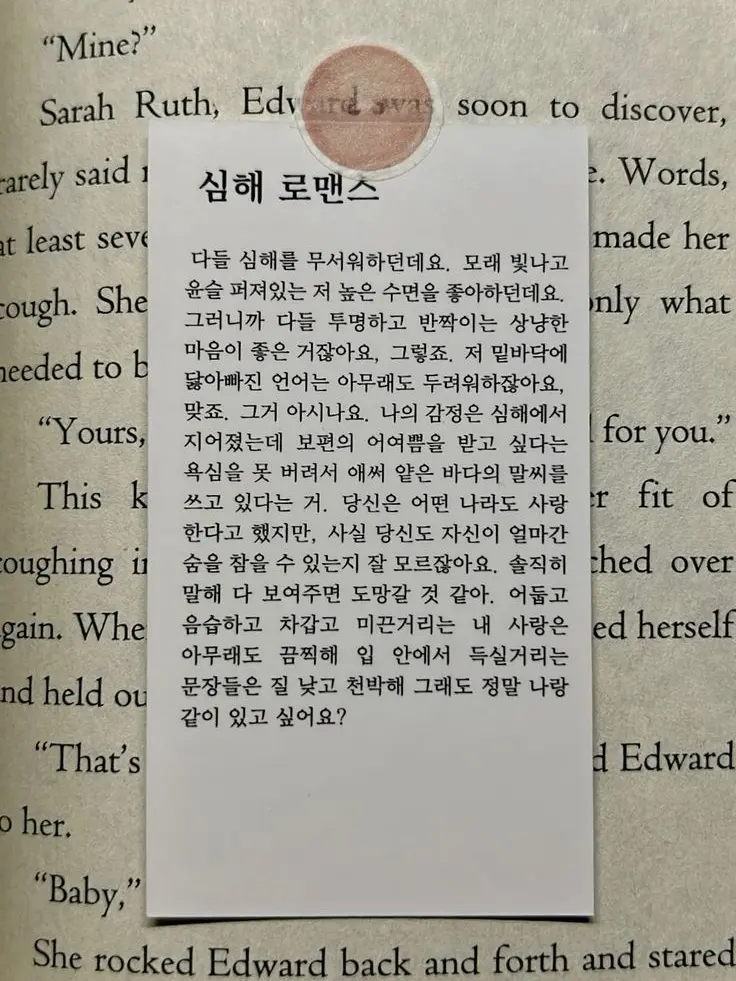 “Mine?”
Sarah Ruth, Edward was soon to discover,
rarely said
Words,
at least
made her
cough. She
only what
needed to
“Yours,
for you.”
This
fit of
coughing
over
again.
herself
and held
“That’s
Edward
to her.
“Baby,”
She rocked Edward back and forth and stared
심해 로맨스
다들 심해를 무서워하던데요. 모래 빛나고
윤슬 퍼져있는 저 높은 수면을 좋아하던데요.
그러니까 다들 투명하고 반짝이는 상냥한
마음이 좋은 거잖아요, 그렇죠. 저 밑바닥에
닳아빠진 언어는 아무래도 두려워하잖아요,
맞죠. 그거 아시나요. 나의 감정은 심해에서
지어졌는데 보편의 어여쁨을 받고 싶다는
욕심을 못 버려서 애써 얕은 바다의 말씨를
쓰고 있다는 거. 당신은 어떤 나라도 사랑
한다고 했지만, 사실 당신도 자신이 얼마간
숨을 참을 수 있는지 잘 모르잖아요. 솔직히
말해 다 보여주면 도망갈 것 같아. 어둡고
음습하고 차갑고 미끈거리는 내 사랑은
아무래도 끔찍해 입 안에서 득실거리는
문장들은 질 낮고 천박해 그래도 정말 나랑
같이 있고 싶어요?